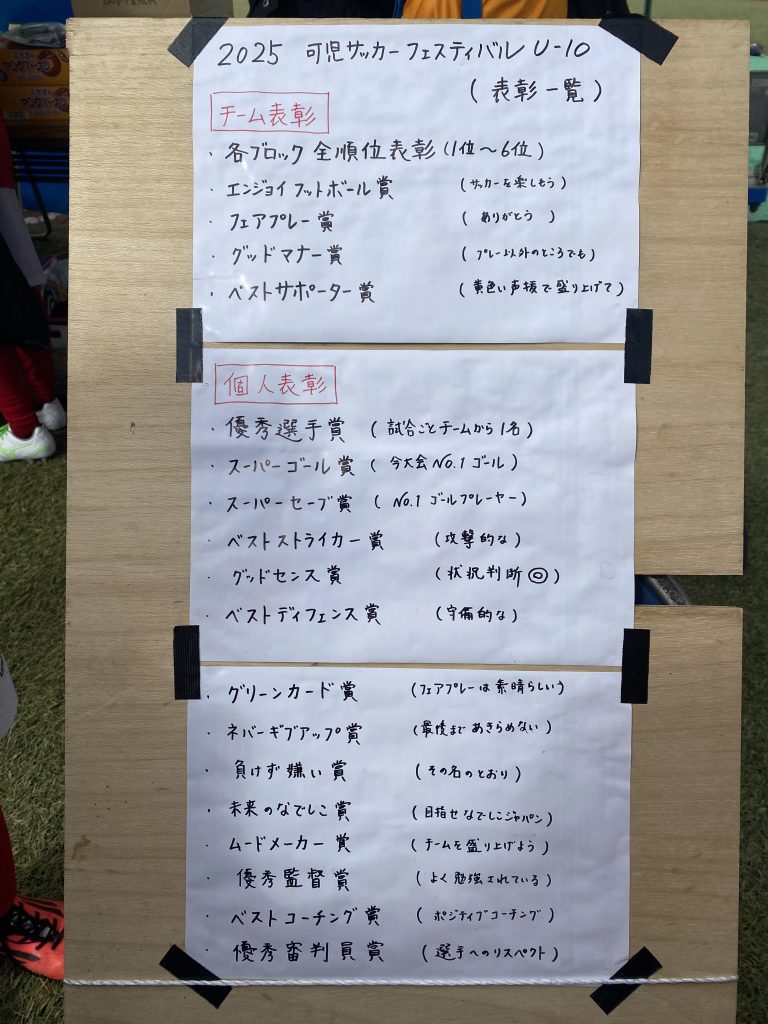 2025 可児サッカーフェスティバル U-10
(表彰一覧)
チーム表彰
・各ブロック 全順位表彰(1位～6位)
・エンジョイフットボール賞 (サッカーを楽しもう)
・フェアプレー賞 (ありがとう)
・グッドマナー賞 (プレー以外のところでも)
・ベストサポーター賞 (黄色い声援で盛り上げて)
個人表彰
・優秀選手賞 (試合ごとチームから1名)
・スーパーゴール賞 (今大会No.1ゴール)
・スーパーセーブ賞 (No.1ゴールプレーヤー)
・ベストストライカー賞 (攻撃的な)
・グッドセンス賞 (状況判断◎)
・ベストディフェンス賞 (守備的な)
・グリーンカード賞 (フェアプレーは素晴らしい)
・ネバーギブアップ賞 (最後まであきらめない)
・負けず嫌い賞 (その名のとおり)
・未来のなでしこ賞 (目指せなでしこジャパン)
・ムードメーカー賞 (チームを盛り上げよう)
・優秀監督賞 (よく勉強されている)
・ベストコーチング賞 (ポジティブコーチング)
・優秀審判員賞 (選手へのリスペクト)